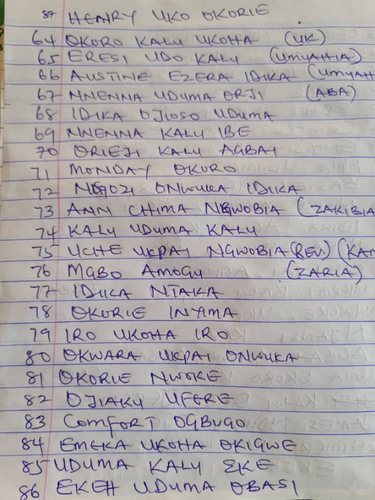 87 HENRY UKO OKORIE
64 OKORO KALU UKOHA (UK)
65 ERESI UDO KALU (UMUAHIA)
66 AUSTINE EZERA IDIKA (UMUAH
67 NNENNA UDUMA ORJI (ABA)
68 IDIKA OJIOSO UDUMA
69 NNENNA KALU IBE
70 ORIEJI KALU AGBAI
71 MONDAY OKORO
72 NGOZI ONWUKA IDIKA
73 ANN CHIMA NGWOBIA (ZAKIBIA
74 KALU UDUMA KALU
75 UCHE UKPAI NGWOBIA (REV.) (KAN
76 MGBO AMOGU (ZARIA)
77 IDIKA NTAKA
78 OKORIE INYIMA
79 IRO UKOHA IRO
80 OKWARA UKPAI ONWUKA
81 OKORIE NWOKE
82 OJIAKU UFERE
83 COMFORT OGBUGO
84 EMEKA UKOHA OKIGWE
85 UDUMA KALU EKE
86 EKEH UDUMA OBASI